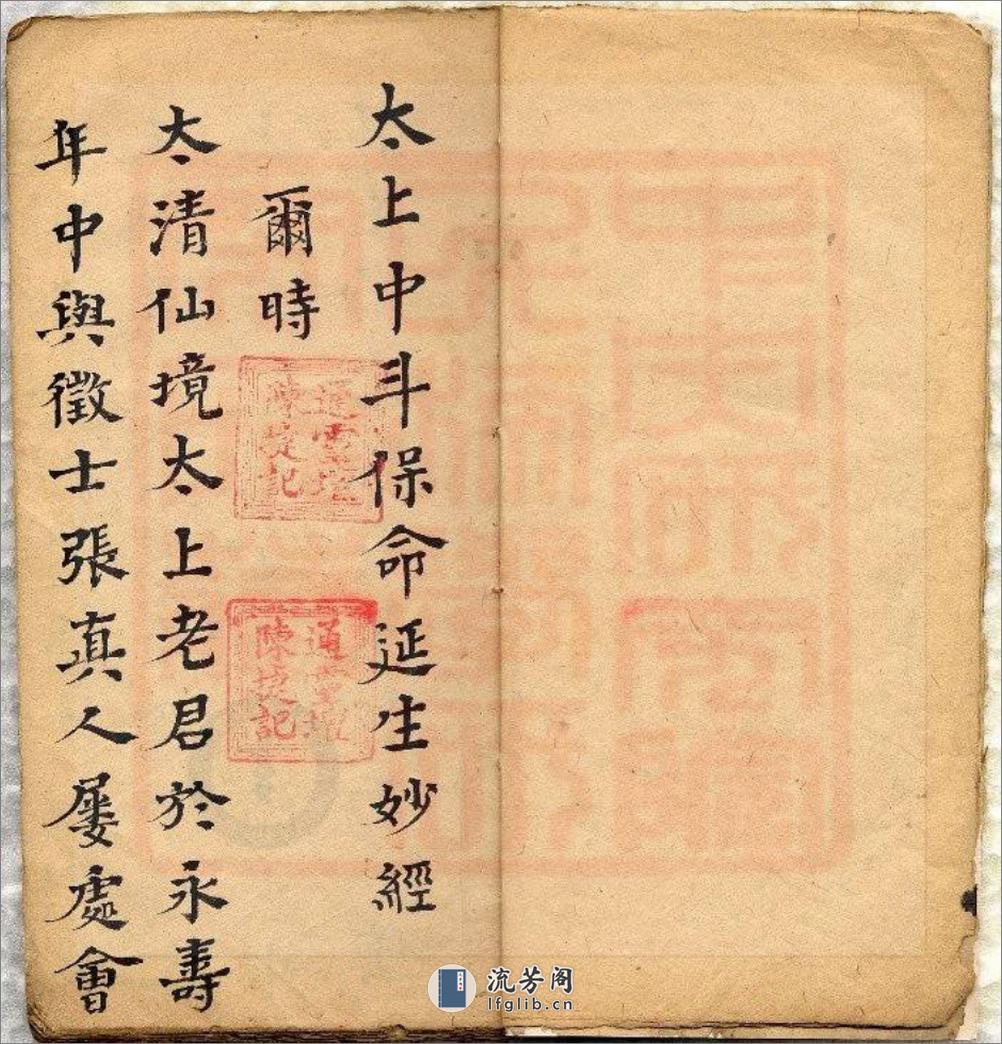 太上中斗保命延生妙經
爾時
太清仙境太上老君於永壽
年中與徵士張真人屡處會
通靈壇
陳捷記
通靈壇
陳捷記
流芳阁
lfglib.cn